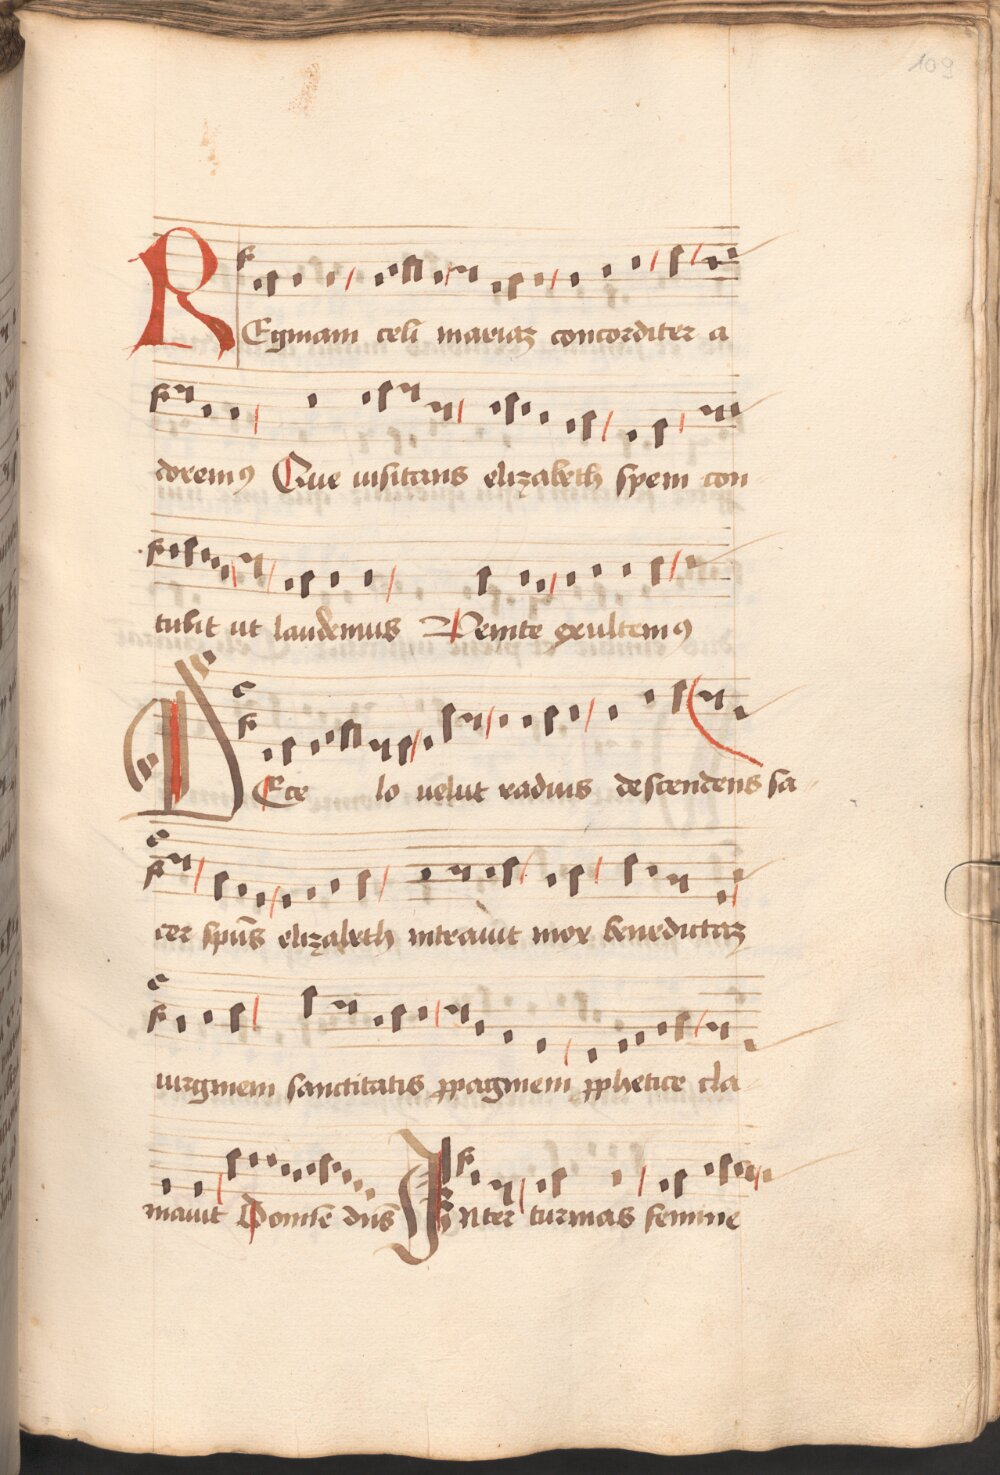 109
REginam celi mariaz concorditer a
doremꝯ Que uisitans elizabeth spem con
tulit ut laudemus Venite exultemꝯ
DE ce lo velut radius descendens sa
cer spūs elizabeth intrauit mox benedictaz
uirginem sanctitatis ꝓpaginem ꝓphetice cla
mauit Domīe dn̄s INter turmas femine